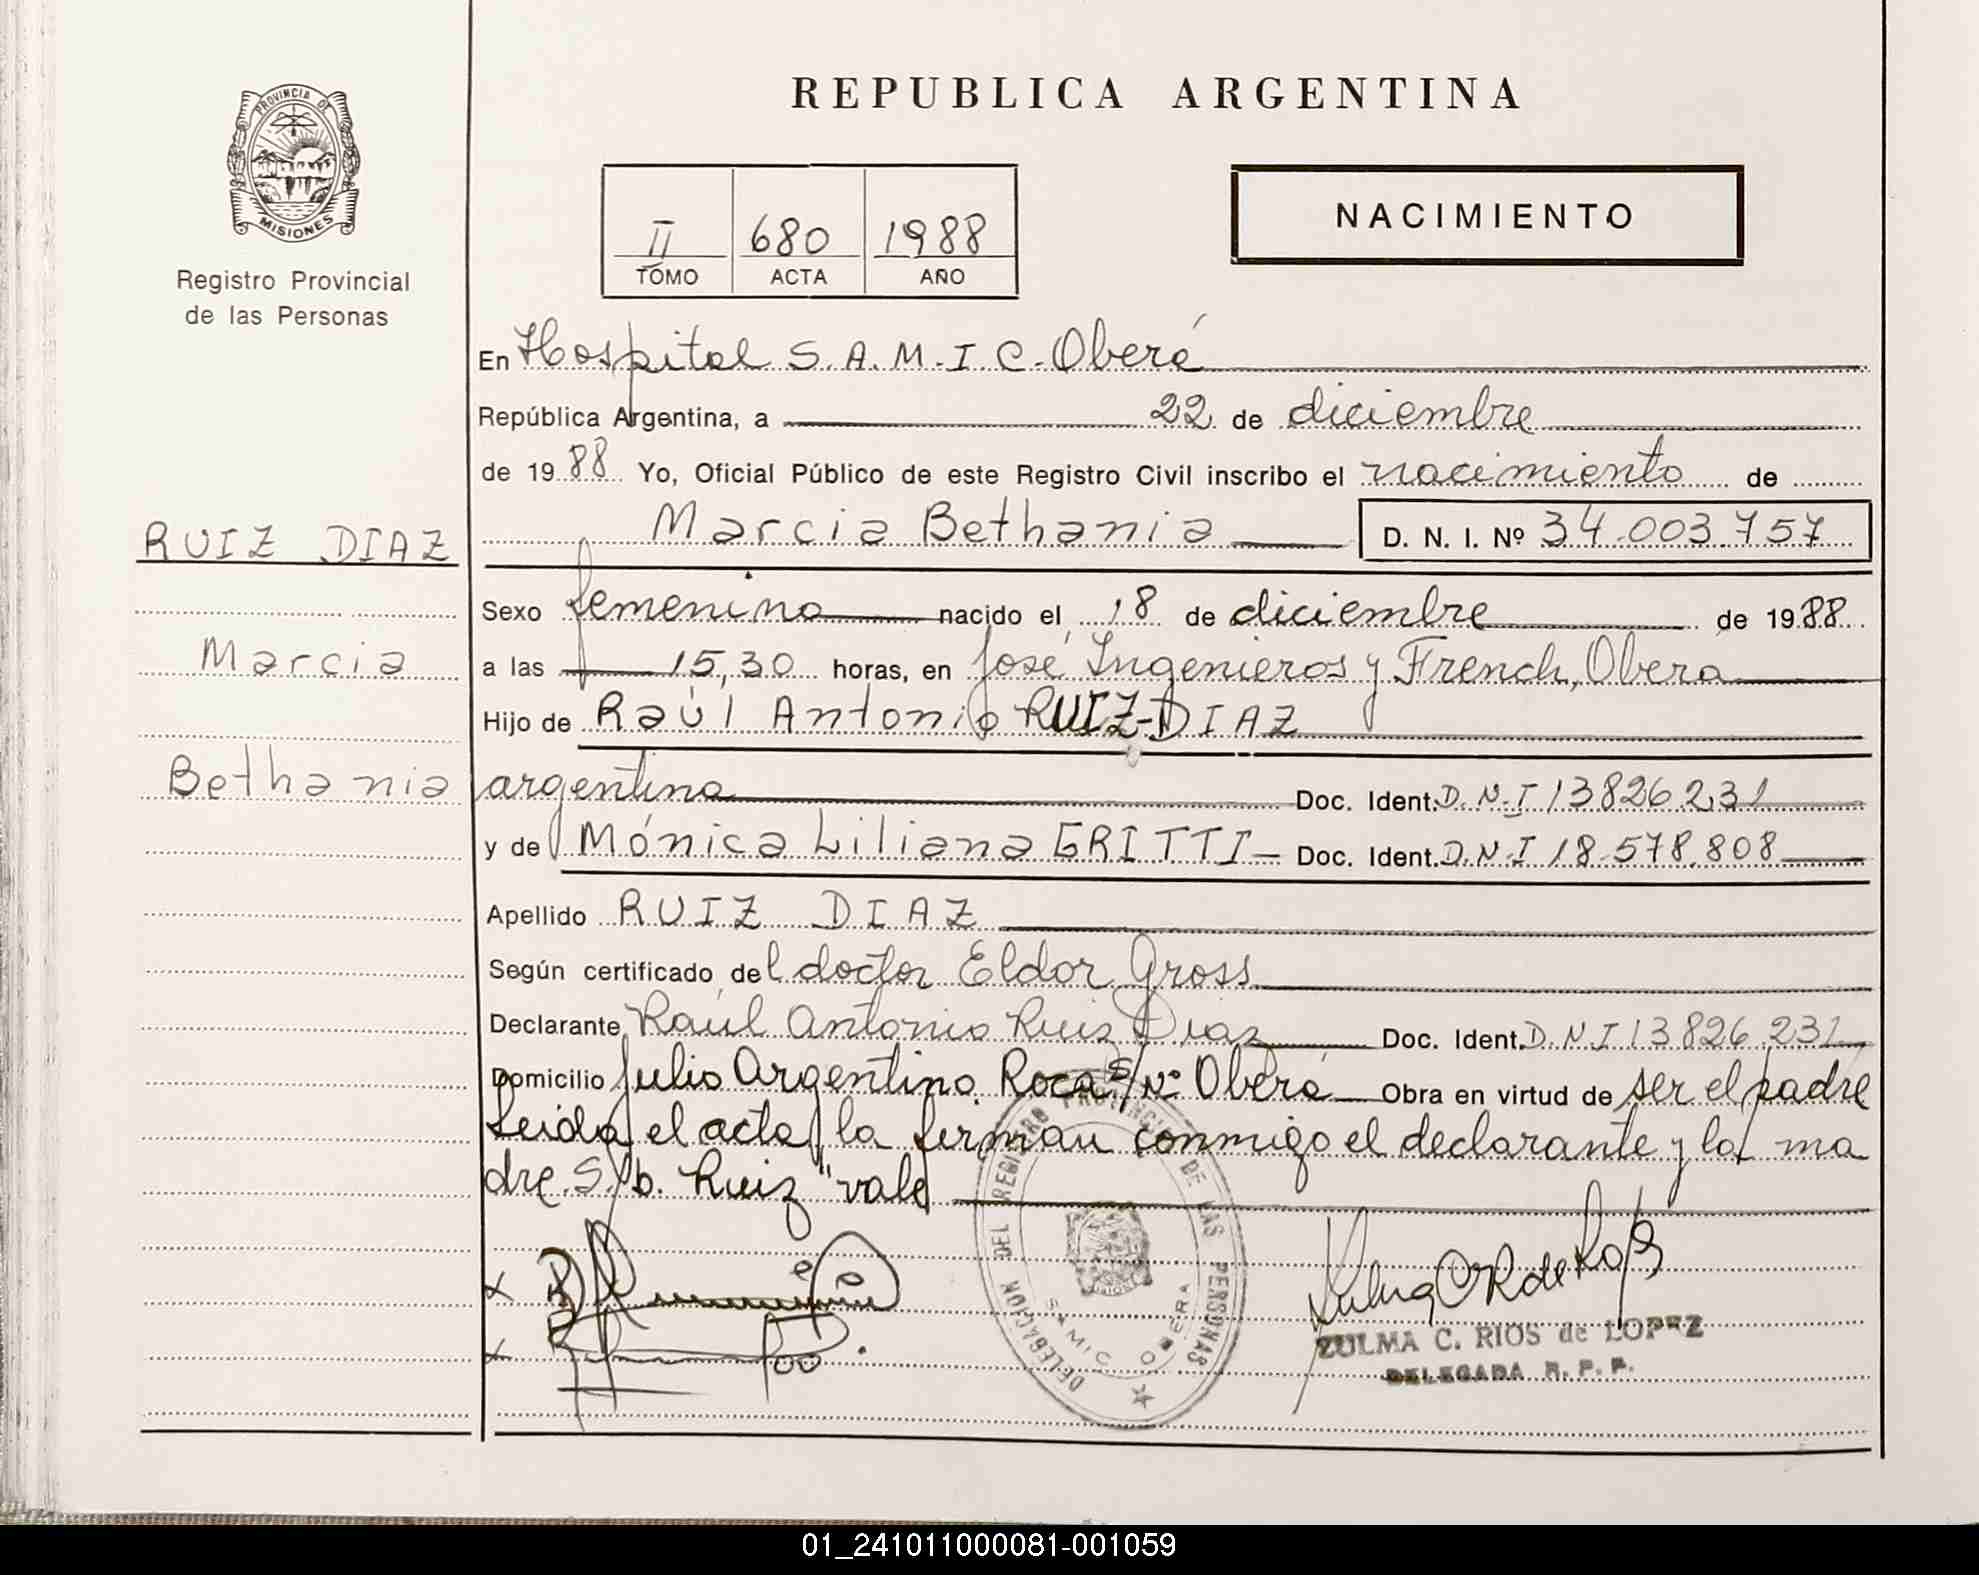 REPUBLICA ARGENTINA
PROVINCIA DE
MISIONES
Registro Provincial
de las Personas
II 680 1988
TOMO ACTA AÑO
NACIMIENTO
En Hospital S.A.M.I.C. Oberá
República Argentina, a 22 de diciembre
de 1988 Yo, Oficial Público de este Registro Civil inscribo el nacimiento de
Marcia Bethania D. N. I. Nº 34.003.757
RUIZ DIAZ
Marcia
Bethania
Sexo femenino nacido el 18 de diciembre de 1988
a las 15,30 horas, en José Ingenieros y French, Oberá
Hijo de Raúl Antonio RUIZ-DIAZ
argentina Doc. Ident. D.N.I 13826231
y de Mónica Liliana GRITTI Doc. Ident. D.N.I 18.578.808
Apellido RUIZ DIAZ
Según certificado del doctor Eldor Gross
Declarante Raúl Antonio Ruiz Diaz Doc. Ident. D.N.I 13826.231
Domicilio Julio Argentino Roca s/Nº Oberá Obra en virtud de ser el padre
Leida el acta, la firman conmigo el declarante y la ma
dre. S/b. "Ruiz" vale
DELEGACION DEL REGISTRO PROVINCIAL DE LAS PERSONAS
SAMIC OBERA
ZULMA C. RIOS de LOPEZ
DELEGADA R. P. P.
01_241011000081-001059